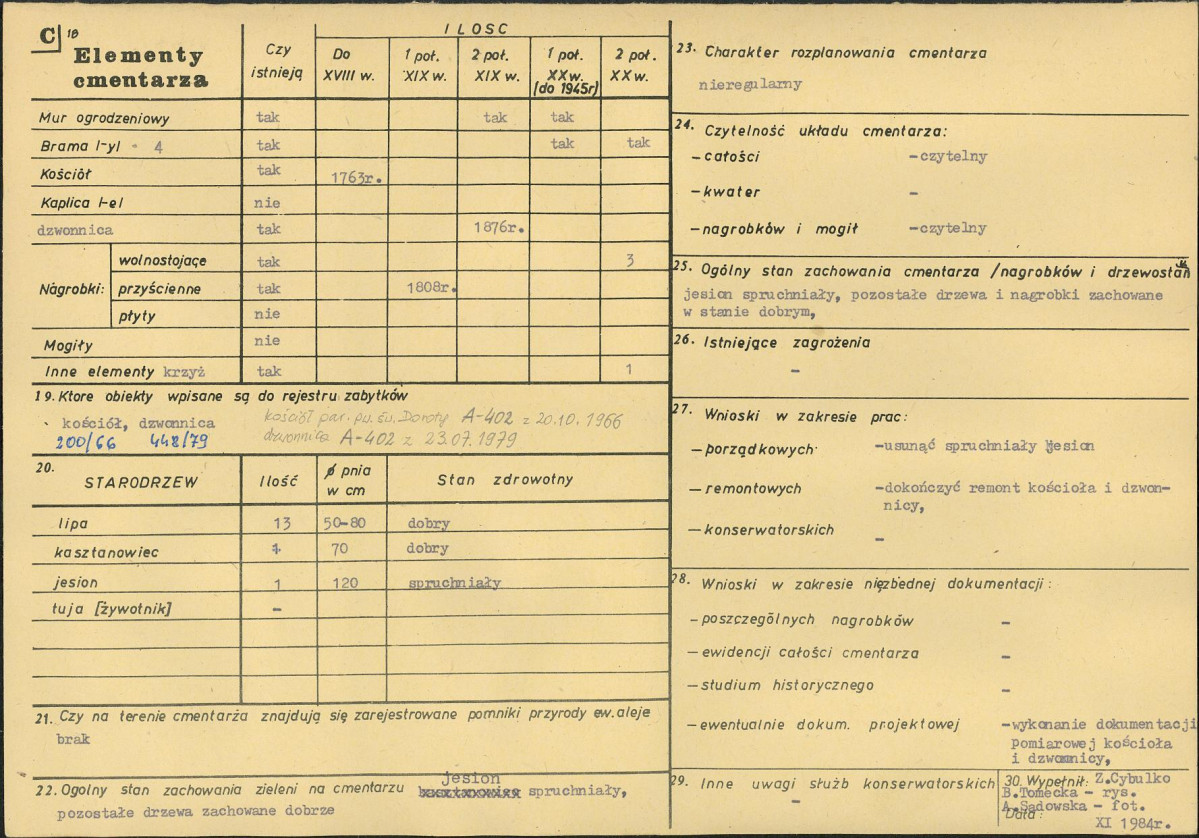 C 18
Elementy cmentarza
Czy istnieją
ILOSC
Do XVIII w.
1 poł. XIX w.
2 poł. XIX w.
1 poł. XX w. (do 1945r)
2 poł. XX w.
Mur ogrodzeniowy tak tak tak
Brama l-yl - 4 tak tak tak
Kościół tak 1763r.
Kaplica l-el nie
dzwonnica tak 1876r.
Nagrobki: wolnostojące tak 3
przyścienne tak 1808r.
płyty nie
Mogiły nie
Inne elementy krzyż tak 1
19. Ktore obiekty wpisane są do rejestru zabytków
kościół, dzwonnica
200/66 448/79
kościół par. pw. św. Doroty A-402 z 20.10.1966
dzwonnica A-402 z 23.07.1979
20. STARODRZEW Ilość ø pnia w cm Stan zdrowotny
lipa 13 50-80 dobry
kasztanowiec 1 70 dobry
jesion 1 120 spruchniały
tuja [żywotnik] -
21. Czy na terenie cmentarza znajdują się zarejestrowane pomniki przyrody ew. aleje
brak
22. Ogolny stan zachowania zieleni na cmentarzu jesion spruchniały,
pozostałe drzewa zachowane dobrze
23. Charakter rozplanowania cmentarza
nieregularny
24. Czytelność układu cmentarza:
-całości -czytelny
-kwater -
-nagrobków i mogił -czytelny
25. Ogólny stan zachowania cmentarza /nagrobków i drzewostan
jesion spruchniały, pozostałe drzewa i nagrobki zachowane
w stanie dobrym,
26. Istniejące zagrożenia
-
27. Wnioski w zakresie prac:
-porządkowych -usunąć spruchniały jesion
-remontowych -dokończyć remont kościoła i dzwon-
nicy,
-konserwatorskich -
28. Wnioski w zakresie niezbędnej dokumentacji:
-poszczególnych nagrobków -
-ewidencji całości cmentarza -
-studium historycznego -
-ewentualnie dokum. projektowej -wykonanie dokumentacji
pomiarowej kościoła
i dzwonnicy,
29. Inne uwagi służb konserwatorskich
-
30. Wypełnił: Z.Cybulko
B.Tomecka - rys.
A.Sadowska - fot.
Data: XI 1984r.